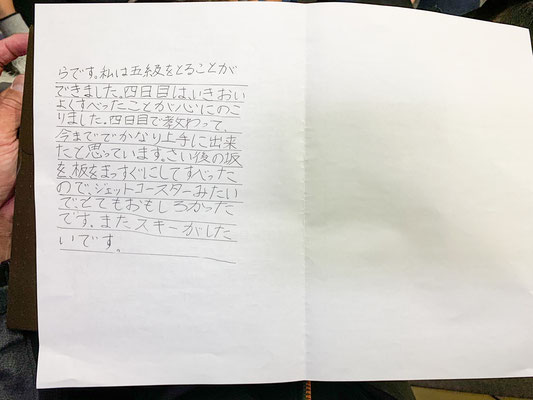 らです。私は五級をとることが
できました。四日目は、いきおい
よくすべったことが心にのこ
りました。四日目で教わって、
今まででかなり上手に出来
たと思っています。さい後の坂
を、板をまっすぐにしてすべった
ので、ジェットコースターみたい
で、とてもおもしろかった
です。またスキーがした
いです。